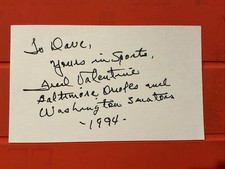 To Dave,
Yours in Sports,
Fred Valentine
Baltimore Orioles and
Washington Senators
-1994-